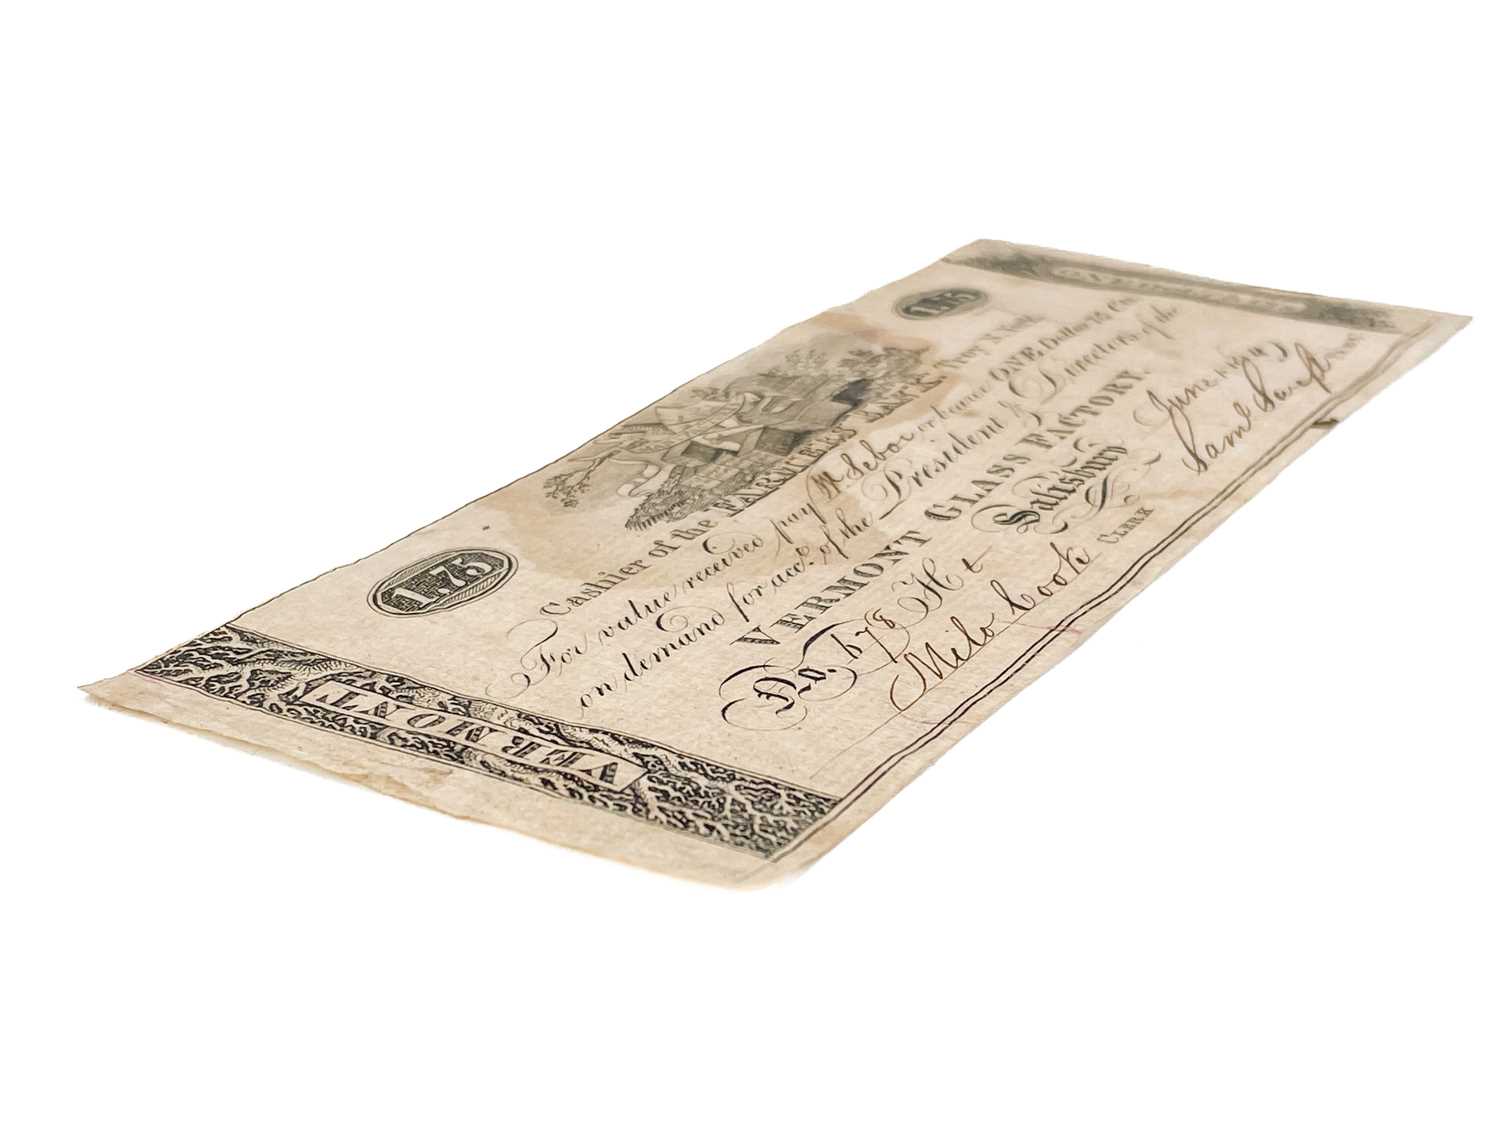 1.75
1.75
Cashier of the FARMERS BANK, Troy N. York,
For value received pay W Sebor or bearer ONE Dollar 75 Cts
on demand for acco. of the President & Directors of the
VERMONT GLASS FACTORY.
Salisbury June
No. 678 H t
Milo Cook CLERK
Saml
VERMONT